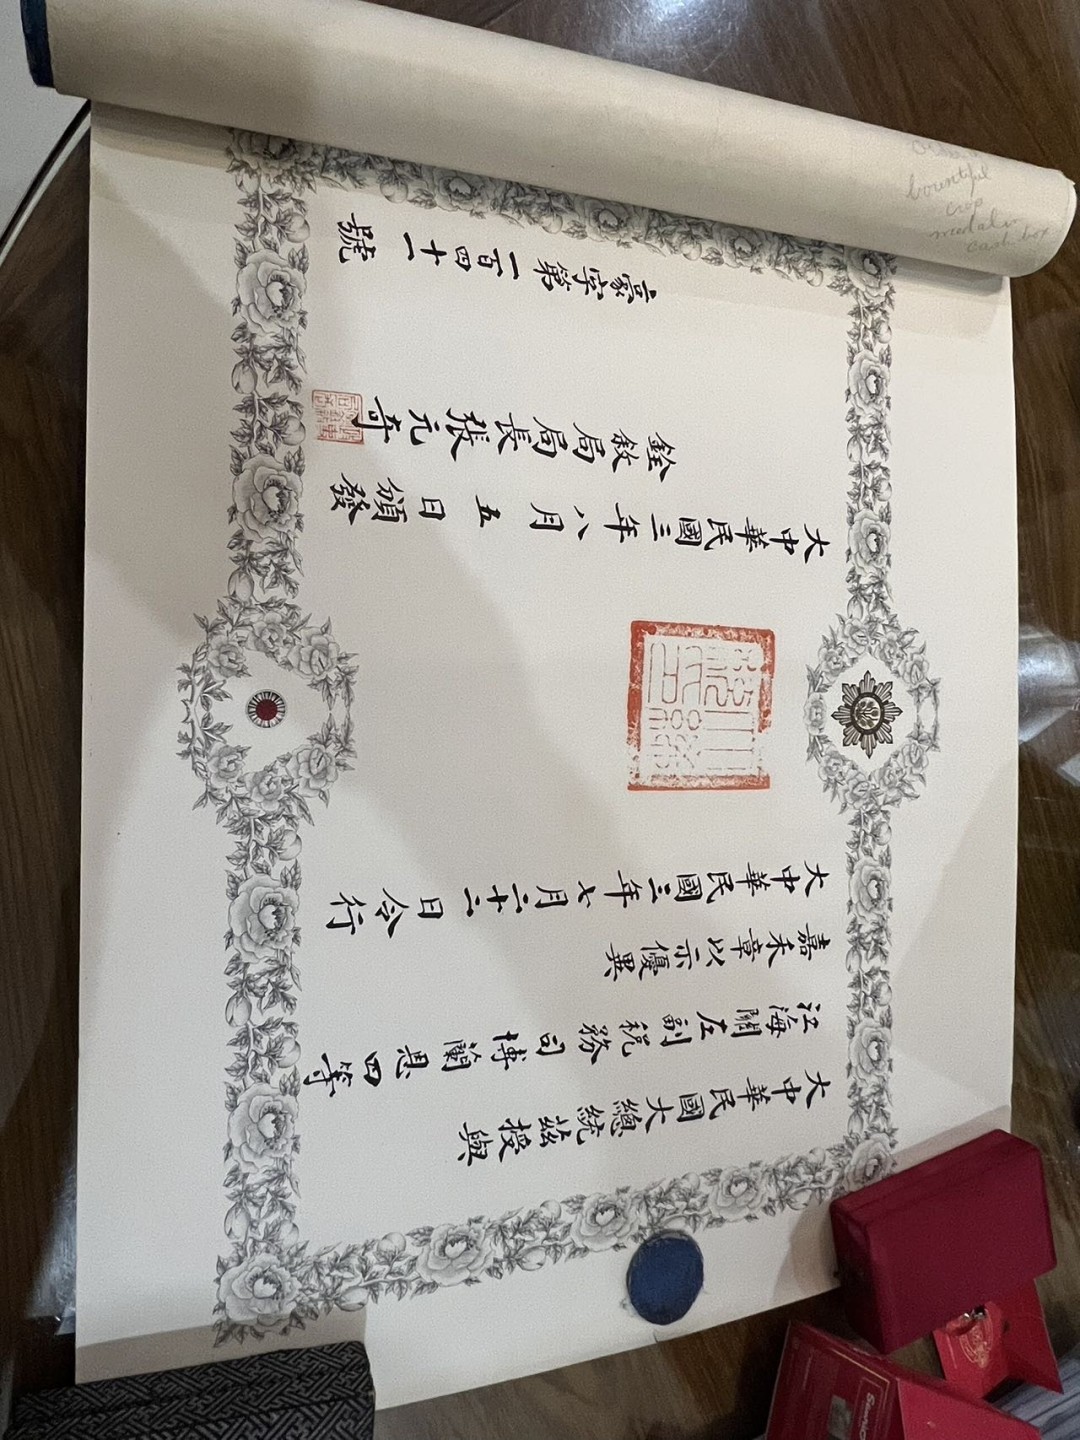 大中華民國大總統茲授與
江海關左副稅務司博蘭恩四等
嘉禾章以示優異
大中華民國三年七月二十二日令行
大中華民國三年八月五日頒發
銓敘局局長張元奇
字第一百四十一號
bountiful
crop
medal in
cash box